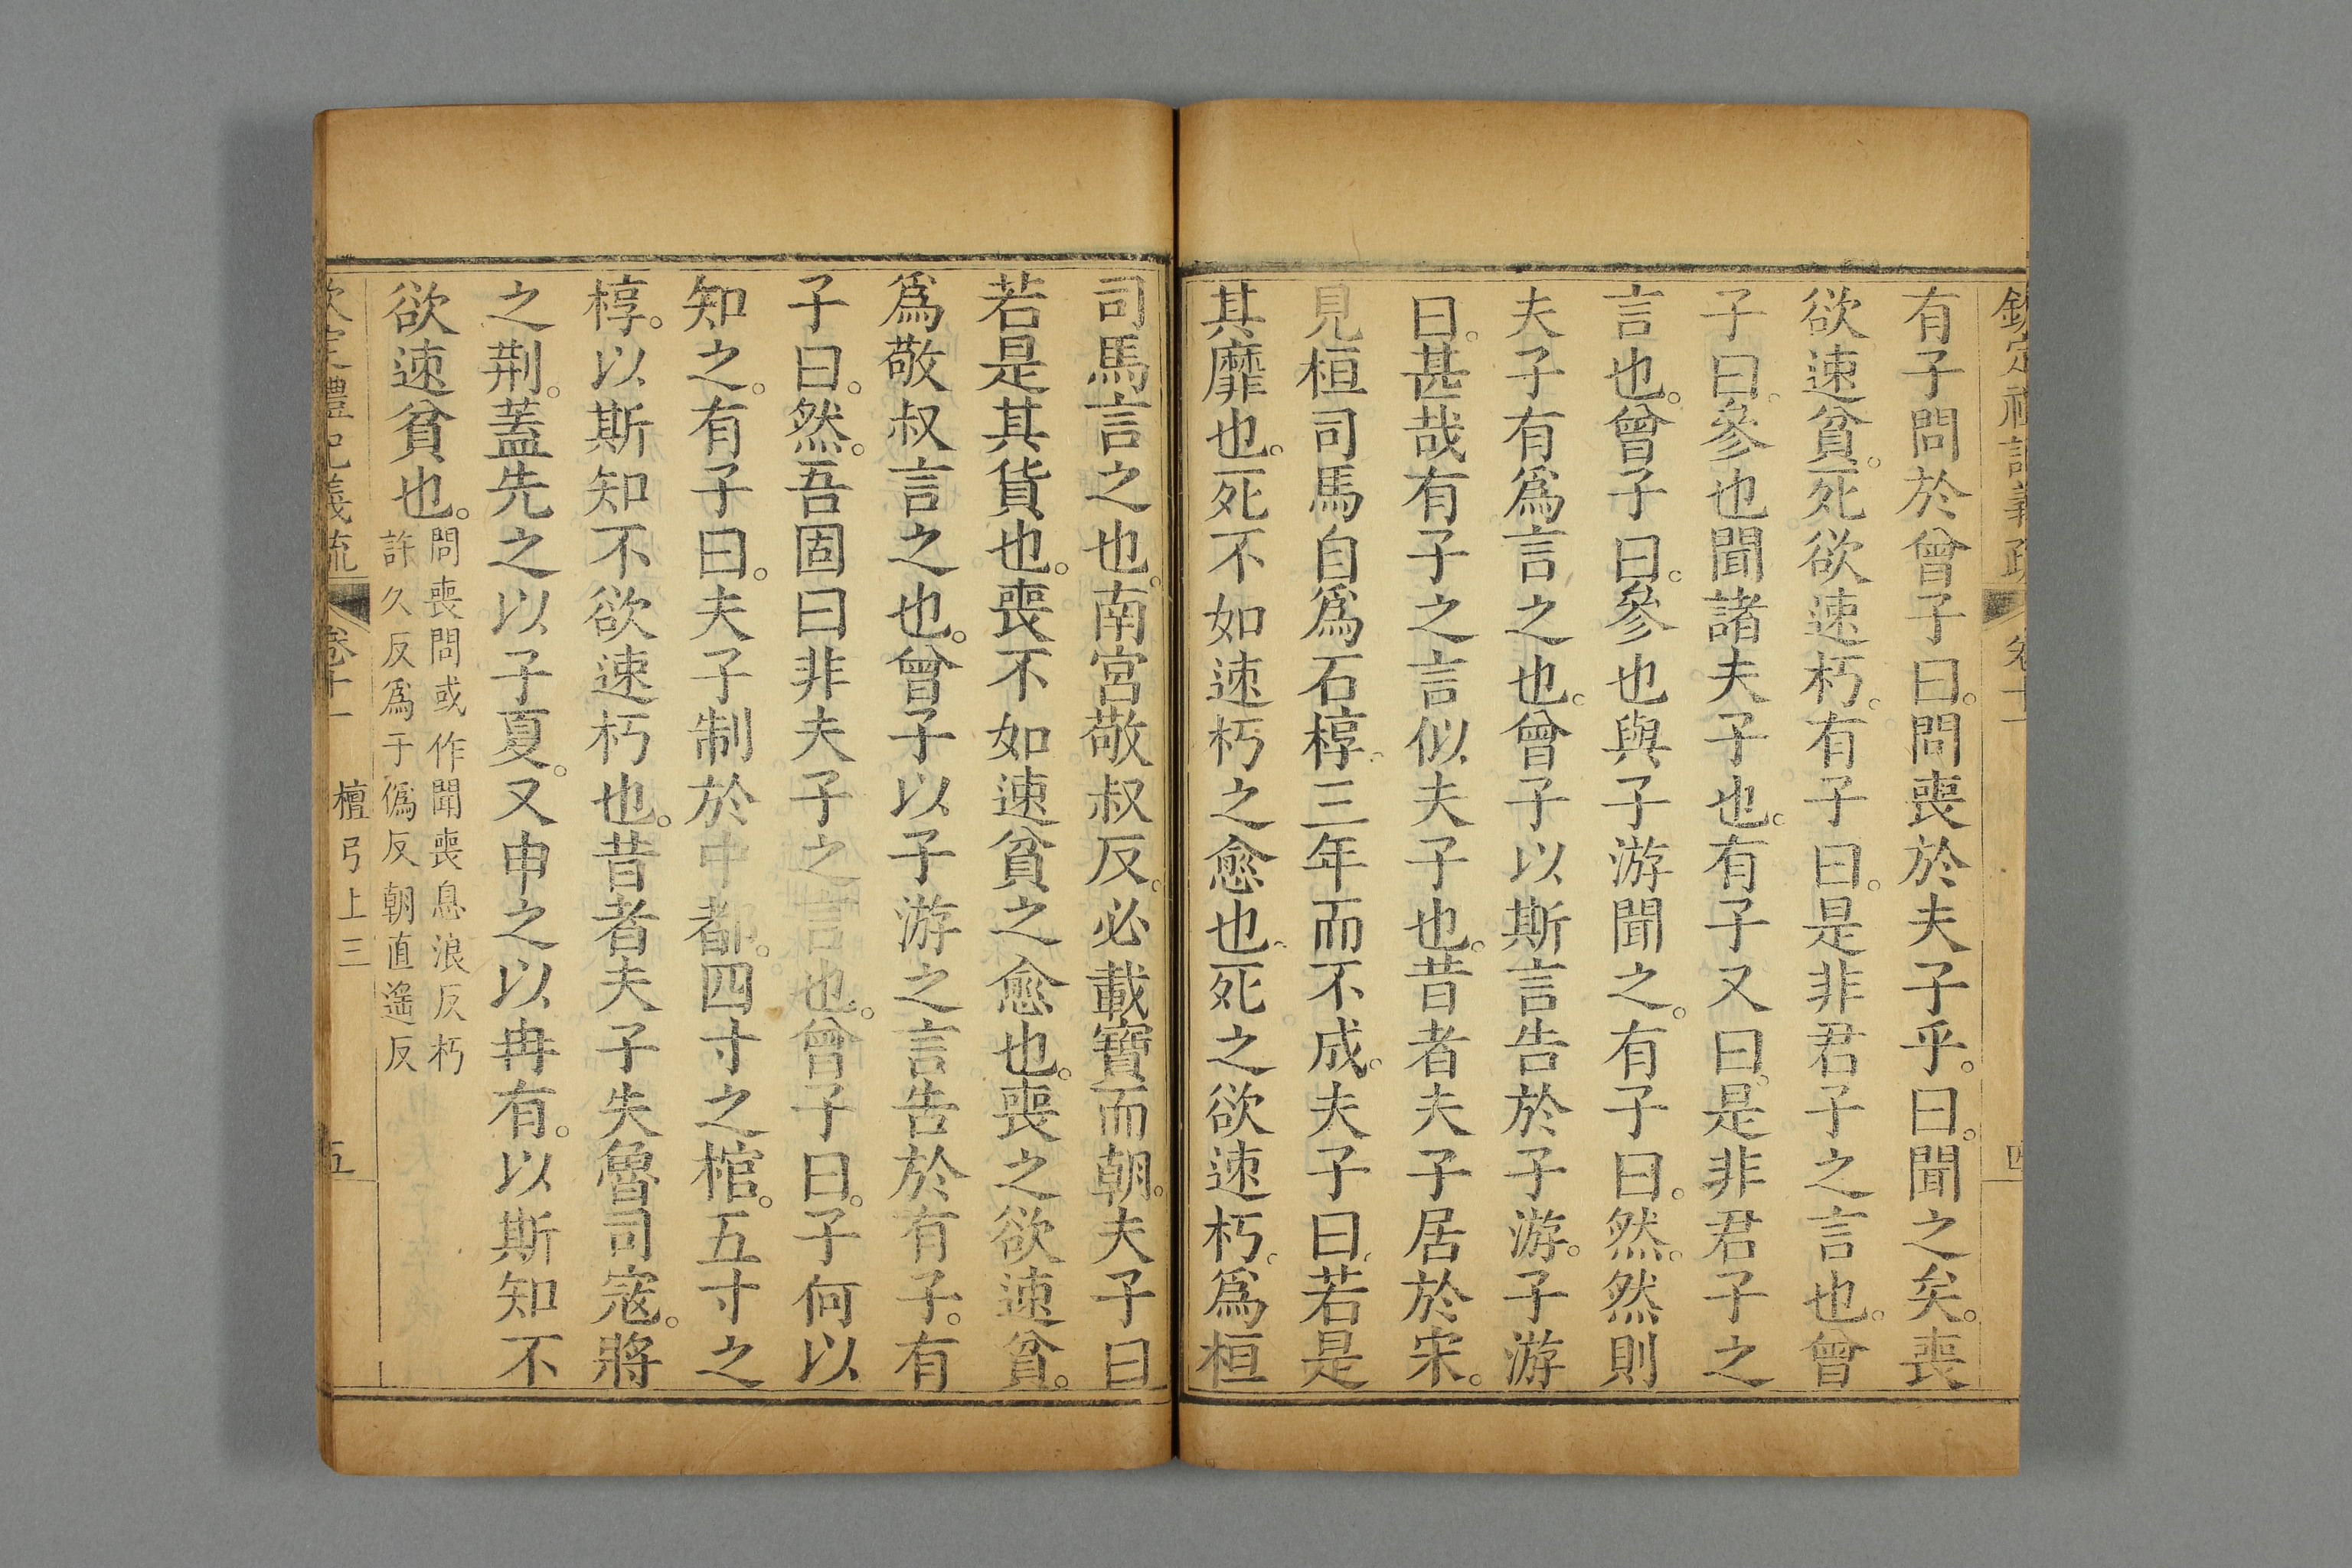 欽定禮記義疏 卷十一 四
有子問於曾子曰。問喪於夫子乎。曰。聞之矣。喪
欲速貧。死欲速朽。有子曰。是非君子之言也。曾
子曰。參也聞諸夫子也。有子又曰。是非君子之
言也。曾子曰。參也與子游聞之。有子曰。然。然則
夫子有爲言之也。曾子以斯言告於子游。子游
曰。甚哉有子之言似夫子也。昔者夫子居於宋。
見桓司馬自爲石椁。三年而不成。夫子曰。若是
其靡也。死不如速朽之愈也。死之欲速朽。爲桓
司馬言之也。南宮敬叔反。必載寶而朝。夫子曰
若是其貨也。喪不如速貧之愈也。喪之欲速貧。
爲敬叔言之也。曾子以子游之言告於有子。有
子曰。然。吾固曰非夫子之言也。曾子曰。子何以
知之。有子曰。夫子制於中都。四寸之棺。五寸之
椁。以斯知不欲速朽也。昔者夫子失魯司寇。將
之荆。蓋先之以子夏。又申之以冉有。以斯知不
欲速貧也。
問喪問或作聞喪息浪反朽
許久反爲于僞反朝直遥反
欽定禮記義疏 卷十一 檀弓上三 五